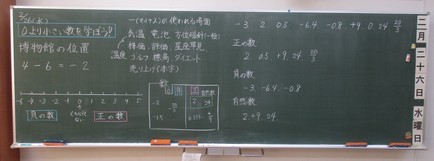 2/26(水)
0より小さい数を学ぼう!!
博物館の位置
4 - 6 = -2
-6 -5 -4 -3 -2 -1 0 1 2 3 4 5 6
負の数
正の数
-(マイナス)が使われる場面
気温 電池 方位磁針(-極)
温度
株価 評価 星座早見
ゴルフ 標高 ダイエット
売り上げ(赤字)
数
負
0
正
自然数
-3
2 24
-3 2 0.5 -6.4 -0.8 +9 0 24 20/3
正の数
2 0.5 +9 24 20/3
負の数
-3, -6.4, -0.8
自然数
2, +9, 24
二月二十六日水曜日